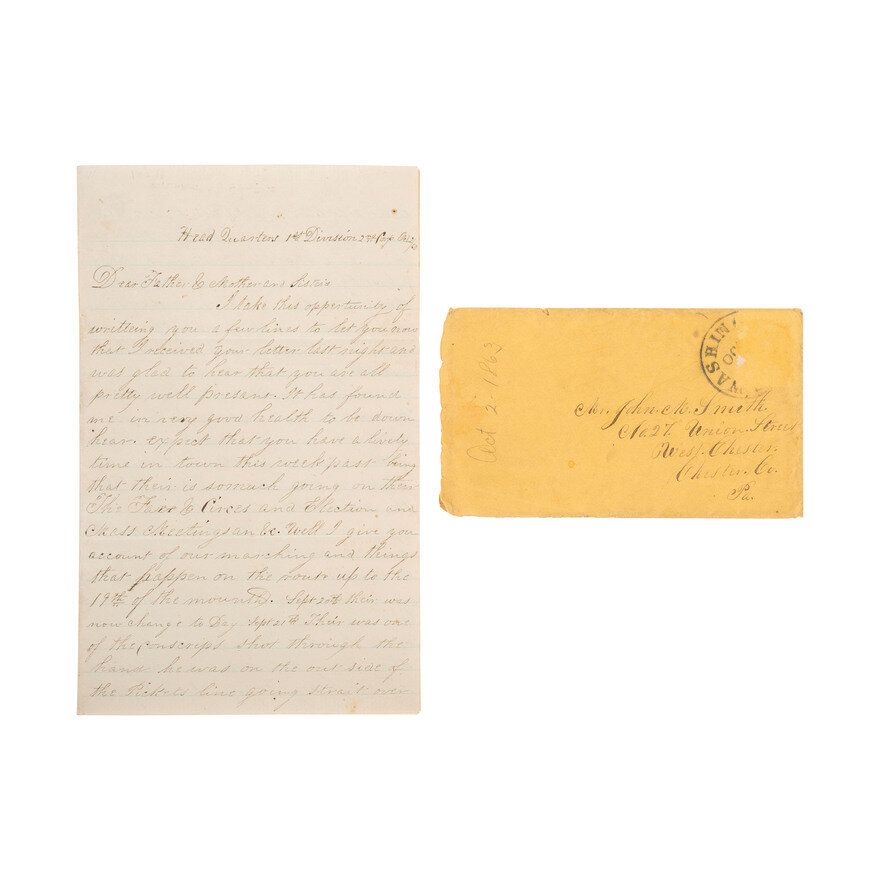 Head Quarters 1st Division 2nd
Dear Father & Mother and Sisters
I take this oppertunity of
writteing you a few lines to let you now
that I received your letter last night and
was glad to hear that you are all
pretty well presane. It has found
me in very good health to be down
hear. expect that you have a lively
time in town this week past being
that their is somuch going on their
The Fair & Circes and Election and
Mass Meetings an &c. Well I give you
account of our marching and things
that happen on the rout up to the
19th of the mounth. Sept 20th their was
now change to Day Sept 21th Their was one
of the conscrips shot through the
hand he was on the out side of
the Pickets line going strait over
Oct 2-1863
WASHIN
OC
Mr. John. M. Smith.
No 27 Union Street
West. Chester.
Chester. Co.
Pa.